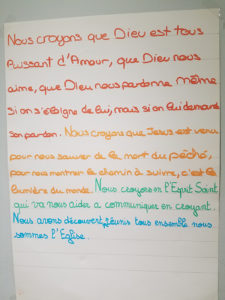 Nous croyons que Dieu est tous
Puissant d'Amour, que Dieu nous
aime, que Dieu nous pardonne même
si on s'éloigne de lui, mais si on lui demande
son pardon. Nous croyons que Jésus est venu
pour nous sauver de la mort du pêché,
pour nous montrer le chemin à suivre, c'est la
lumière du monde. Nous croyons en l'Esprit Saint
qui va nous aider à communiquer en croyant.
Nous avons découvert, réunis tous ensemble nous
sommes l'Eglise.